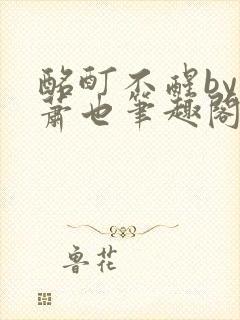 酩酊不醒by
萧也笔趣阁
鲁花